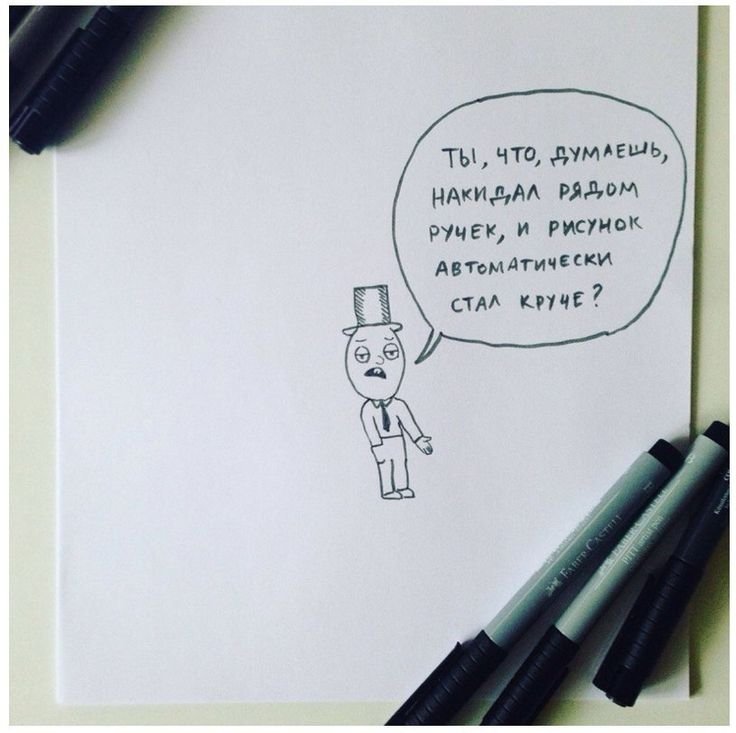 ТЫ, ЧТО, ДУМАЕШЬ,
НАКИДАЛ РЯДОМ
РУЧЕК, И РИСУНОК
АВТОМАТИЧЕСКИ
СТАЛ КРУЧЕ?
FABER-CASTELL
FABER-CASTELL
PITT artist pen